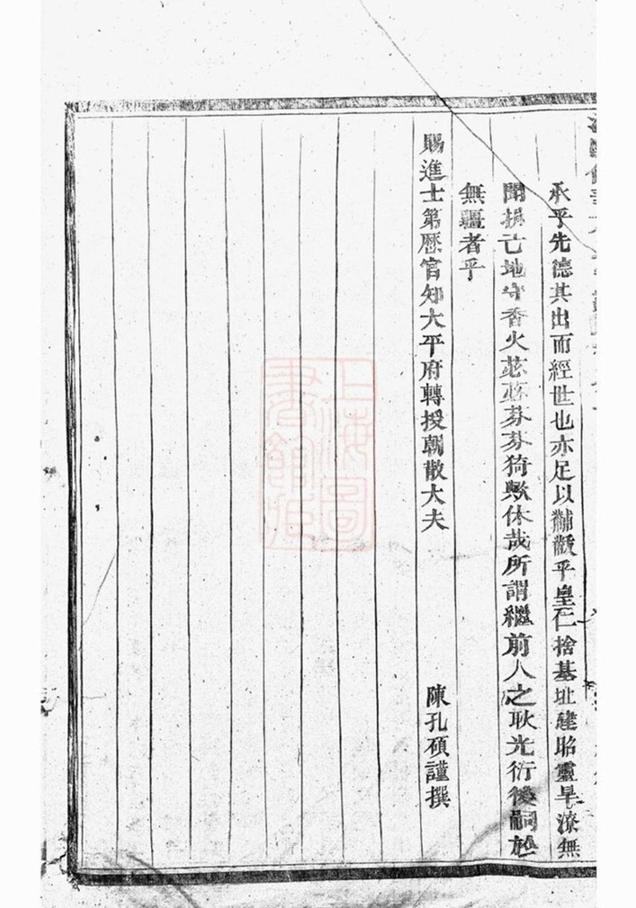 承乎先德其出而經世也亦足以黼黻乎皇仁捨基址建昭靈旱潦無
聞損亡地守香火苾苾芬芬猗歟休哉所謂繼前人之耿光衍後嗣於
無疆者乎
賜進士第歷官知大平府轉授朝散大夫
陳孔碩謹撰
上海圖
書館藏